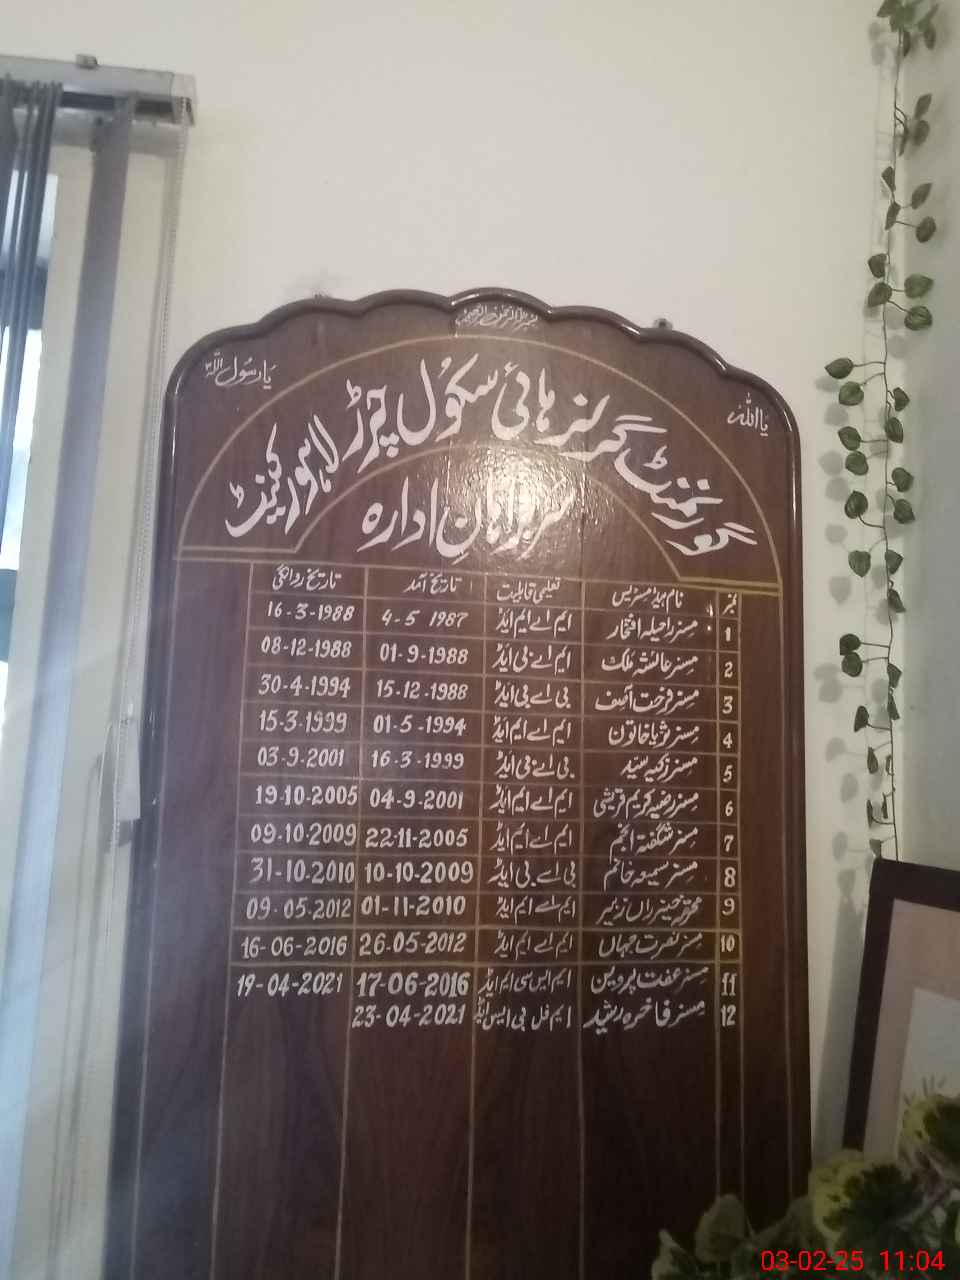 بسم اللہ الرحمن الرحیم
یا اللہ
یا رسول اللہ
گورنمنٹ گرلز ہائی سکول چرڑ لاہور کینٹ
سربراہان ادارہ
نمبر نام ہیڈ مسٹریس تعلیمی قابلیت تاریخ آمد تاریخ روانگی
1 مسز راحیلہ افتخار ایم اے ایم ایڈ 4-5 1987 16-3-1988
2 مسز عائشہ ملک ایم اے بی ایڈ 01-9-1988 08-12-1988
3 مسز فرحت آصف بی اے بی ایڈ 15-12-1988 30-4-1994
4 مسز ثریا خاتون ایم اے ایم ایڈ 01-5-1994 15-3-1999
5 مسز زکیہ سید بی اے بی ایڈ 16-3-1999 03-9-2001
6 مسز رضیہ کریم قریشی ایم اے ایم ایڈ 04-9-2001 19-10-2005
7 مسز شگفتہ انجم ایم اے ایم ایڈ 22-11-2005 09-10-2009
8 مسز سمیعہ خانم بی اے بی ایڈ 10-10-2009 31-10-2010
9 محترمہ زبیر ایم اے ایم ایڈ 01-11-2010 09-05-2012
10 مسز نصرت جہاں ایم اے ایم ایڈ 26-05-2012 16-06-2016
11 مسز عفت پروین ایم ایس سی ایم ایڈ 17-06-2016 19-04-2021
12 مسز فاخرہ رشید ایم فل بی ایس ایڈ 23-04-2021
03-02-25 11:04